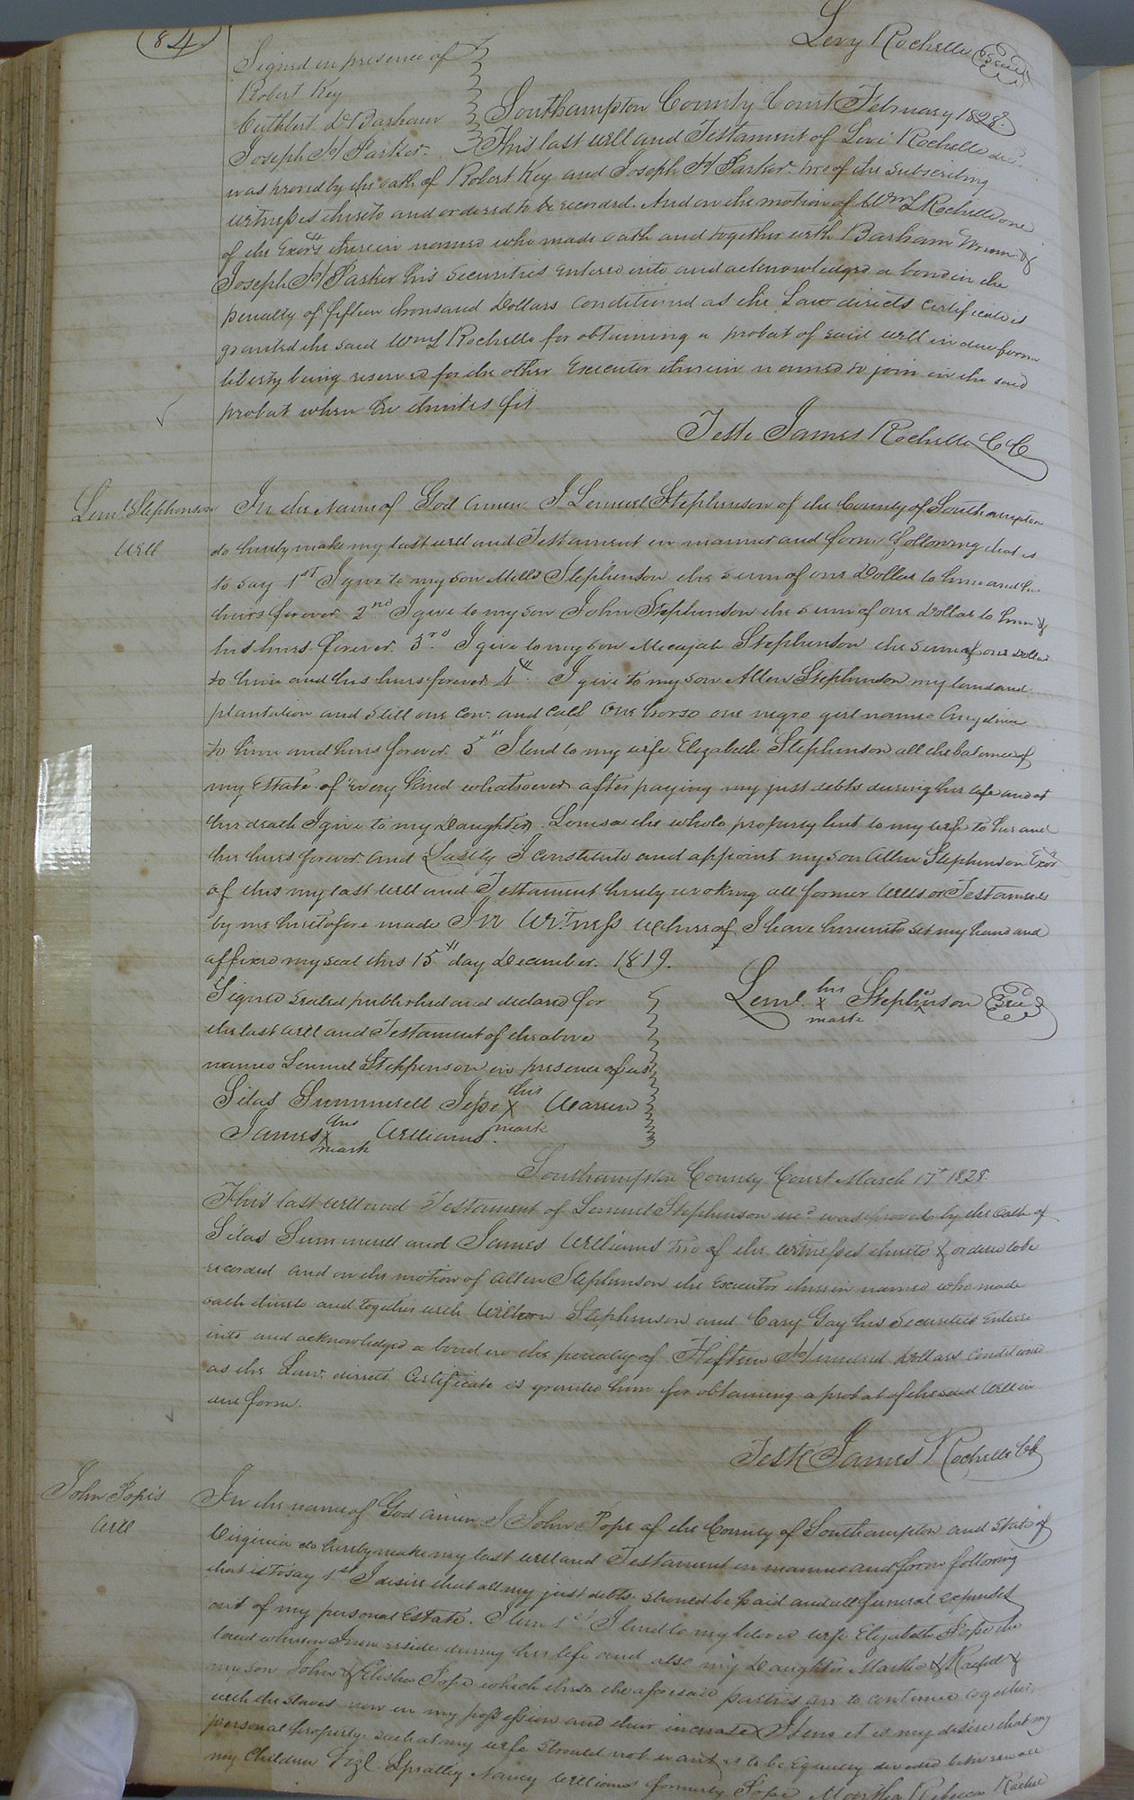 84
Levy Rochelle Seal
Signed in presence of
Robert Key
Cuthbert D Barham
Joseph H Parker.
Southampton County Court February 1828.
This last will and Testament of Levi Rochelle decd.
was proved by the oath of Robert Key and Joseph H Parker two of the subscribing
witnesses thereto and ordered to be recorded. And on the motion of Wm L Rochelle one
of the Exors therein named who made oath and together with Barham &
Joseph H Parker his securities entered into and acknowledged a bond in the
penalty of fifteen thousand Dollars conditioned as the Law directs Certificate is
granted the said Wm L Rochelle for obtaining a probat of said will in due form
liberty being reserved for the other Executor therein named to join in the said
probat when he thinks fit.
Teste James Rochelle C C
Leml. Stephenson
Will
In the Name of God Amen. I Lemuel Stephenson of the County of Southampton
do hereby make my last will and Testament in manner and form following that is
to say 1st I give to my son Mills Stephenson the sum of one Dollar to him and his
heirs forever. 2nd I give to my son John Stephenson the sum of one Dollar to him &
his heirs forever. 3rd I give to my son Micajah Stephenson the sum of one Dollar
to him and his heirs forever. 4th I give to my son Allen Stephenson my land and
plantation and Still one Cow and Calf One horse one negro girl name Angelina
to him and heirs forever. 5th I lend to my wife Elizabeth Stephenson all the balance of
my Estate of every kind whatsoever after paying my just debts during her life and at
her death I give to my Daughter Louisa the whole property lent to my wife to her and
her heirs forever. And Lastly I constitute and appoint my son Allen Stephenson Exor
of this my last will and Testament hereby revoking all former Wills or Testaments
by me heretofore made In Witness Whereof I have hereunto set my hand and
affixed my seal this 15th day December. 1819.
Signed Sealed published and declared for
the last will and Testament of the above
named Lemuel Stephenson in presence of us
Leml. his x mark Stephenson Seal
Silas Summerell Jesse his x mark Warren
James his x mark Williams.
Southampton County Court March 17th 1828
This last will and Testament of Lemuel Stephenson decd was proved by the oath of
Silas Summerell and James Williams two of the witnesses thereto & ordered to be
recorded and on the motion of Allen Stephenson the Executor therein named who made
oath thereto and together with Stephenson and Cary Gay his securities entered
into and acknowledged a bond in the penalty of Fifteen Hundred Dollars conditioned
as the Law directs Certificate is granted him for obtaining a probat of the said will in
due form.
Teste James Rochelle Clk
John Pope's
Will
In the name of God amen I John Pope of the County of Southampton and State of
Virginia do hereby make my last will and Testament in manner and form following
that is to say 1st I desire that all my just debts should be paid and all funeral expended
out of my personal Estate. Item 1st I lend to my beloved wife Elizabeth Pope the
land whereon I now reside during her life and also my Daughter Martha &
my son John & Elisha Pope which the aforesaid parties are to continue together
with the slaves now in my possession and their increase Item it is my desire that my
personal property such as my wife should not want is to be Equally divided between all
my Children Vizl. Spratley Nancy Williams formerly Pope Martha Rebecca